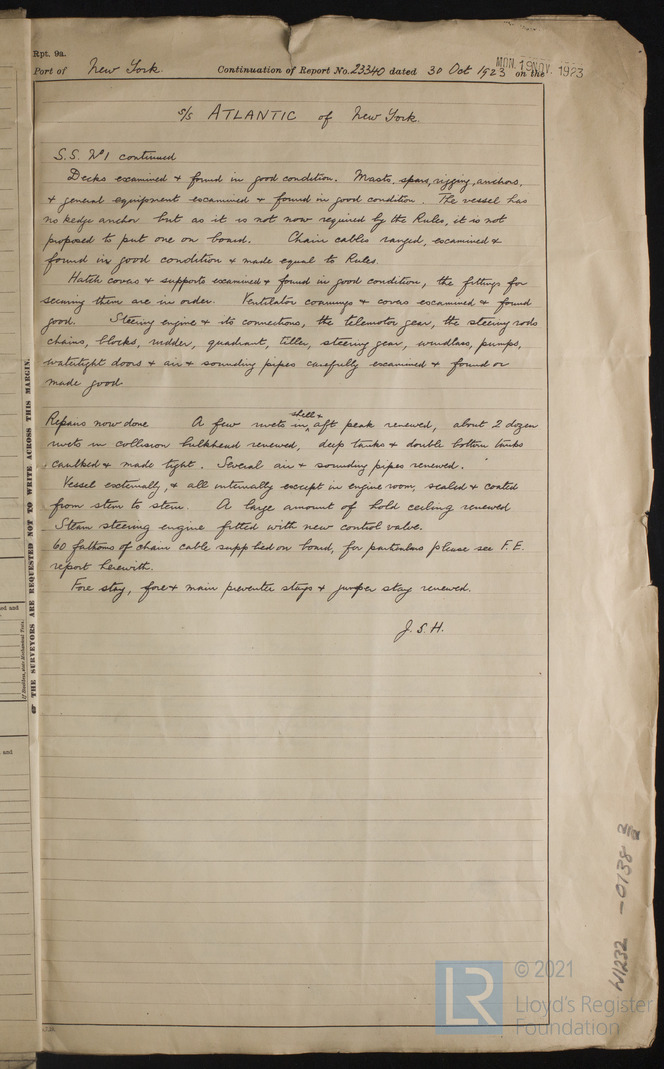 Rpt. 9a.
Port of New York. Continuation of Report No. 23340 dated 30 Oct 1923 on the
MON. 19 NOV. 1923
s/s ATLANTIC of New York.
S.S. No 1 continued
Decks examined & found in good condition. Masts, spars, rigging, anchors,
& general equipment examined & found in good condition. The vessel has
no kedge anchor but as it is not now required by the Rules, it is not
proposed to put one on board. Chain cables ranged, examined &
found in good condition & made equal to Rules.
Hatch covers & supports examined & found in good condition, the fittings for
securing them are in order. Ventilator coamings & covers examined & found
good. Steering engine & its connections, the telemotor gear, the steering rods
chains, blocks, rudder, quadrant, tiller, steering gear, windlass, pumps,
watertight doors & air & sounding pipes carefully examined & found or
made good.
Repairs now done A few rivets in shell & aft peak renewed, about 2 dozen
rivets in collision bulkhead renewed, deep tanks & double bottom tanks
caulked & made tight. Several air & sounding pipes renewed.
Vessel externally, & all internally except in engine room, scaled & coated
from stem to stern. A large amount of hold ceiling renewed
Steam steering engine fitted with new control valve.
60 fathoms of chain cable supplied on board, for particulars please see F.E.
report herewith.
Fore stay, fore & main preventer stays & jumper stay renewed.
J.S.H.
THE SURVEYORS ARE REQUESTED NOT TO WRITE ACROSS THIS MARGIN.
W1232 - 0138 2/2
LR
© 2021
Lloyd's Register
Foundation